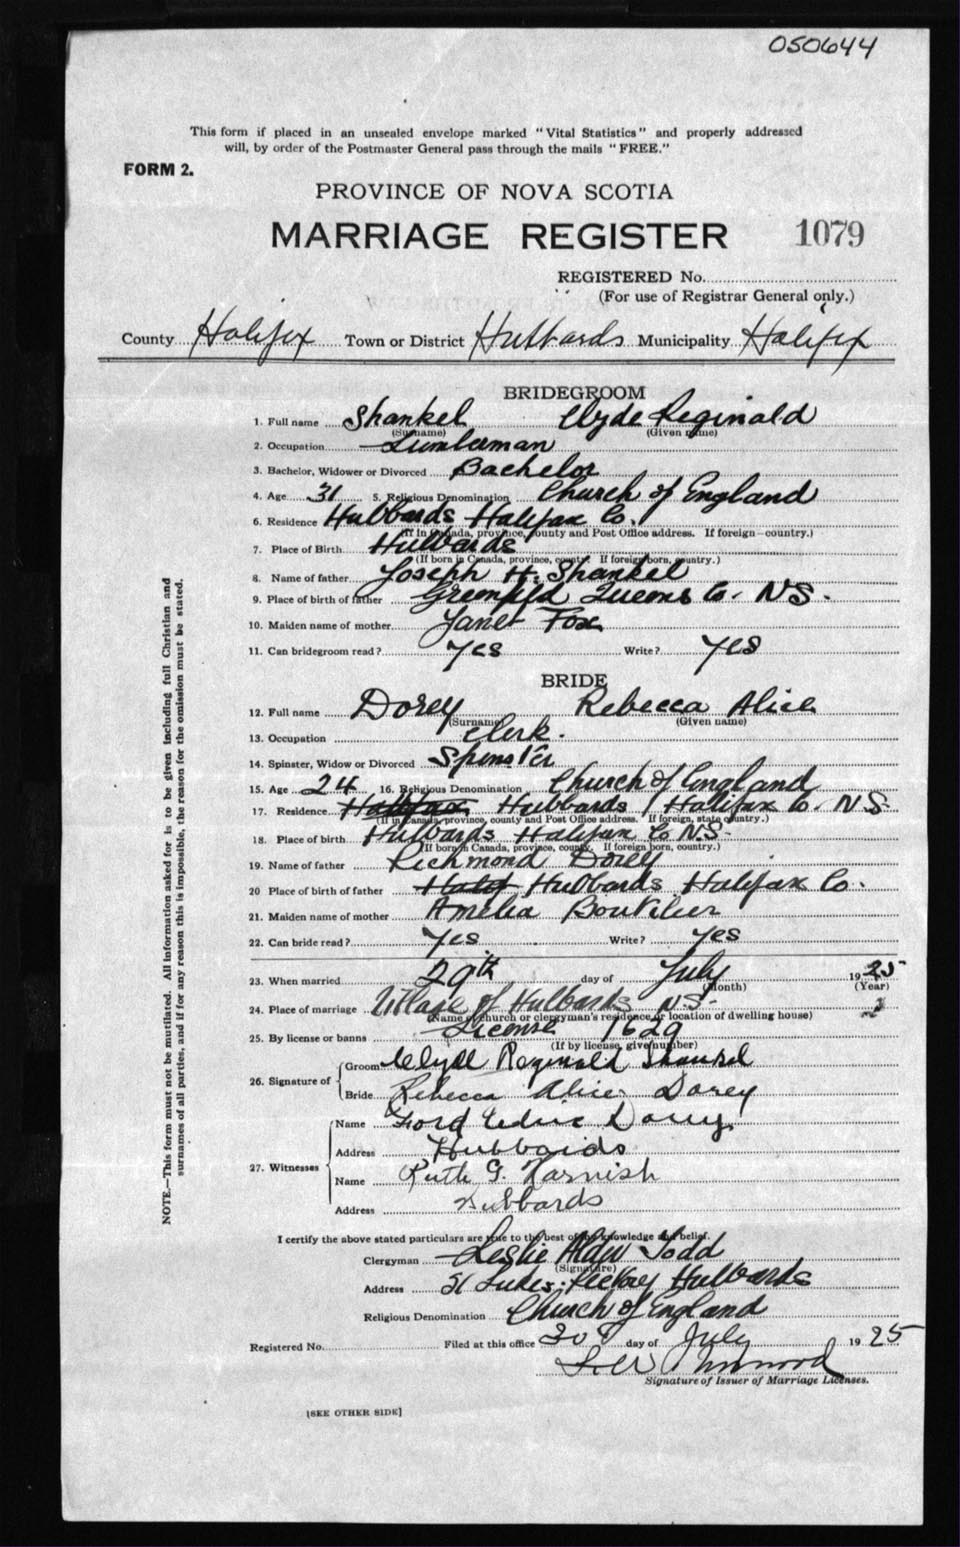 050644
This form if placed in an unsealed envelope marked "Vital Statistics" and properly addressed
will, by order of the Postmaster General pass through the mails "FREE."
FORM 2.
PROVINCE OF NOVA SCOTIA
MARRIAGE REGISTER 1079
REGISTERED No.
(For use of Registrar General only.)
County Halifax Town or District Hubbards Municipality Halifax
BRIDEGROOM
1. Full name Shankel Clyde Reginald
(Surname) (Given name)
2. Occupation Lumberman
3. Bachelor, Widower or Divorced Bachelor
4. Age 31 5. Religious Denomination Church of England
6. Residence Hubbards Halifax Co.
(If in Canada, province, county and Post Office address. If foreign—country.)
7. Place of Birth Hubbards
(If born in Canada, province, county. If foreign born, country.)
8. Name of father Joseph H. Shankel
9. Place of birth of father Greenfield Queens Co. N S.
10. Maiden name of mother Janet Fox
11. Can bridegroom read? Yes Write? Yes
BRIDE
12. Full name Dorey Rebecca Alice
(Surname) (Given name)
13. Occupation Clerk.
14. Spinster, Widow or Divorced Spinster
15. Age 24 16. Religious Denomination Church of England
17. Residence Halifax Hubbards Halifax Co. N S
(If in Canada, province, county and Post Office address. If foreign, state country.)
18. Place of birth Hubbards Halifax Co N S.
(If born in Canada, province, county. If foreign born, country.)
19. Name of father Richmond Dorey
20 Place of birth of father Hubbards Halifax Co.
21. Maiden name of mother Amelia Boutilier
22. Can bride read? Yes. Write? Yes
23. When married 29th day of July 1925
(Month) (Year)
24. Place of marriage Village of Hubbards N S.
(Name of church or clergyman's residence, or location of dwelling house)
25. By license or banns License 1629
(If by license, give number)
26. Signature of Groom Clyde Reginald Shankel
Bride Rebecca Alice Dorey
27. Witnesses Name Ford Dorey
Address Hubbards
Name Ruth G. Harnish
Address Hubbards
I certify the above stated particulars are true to the best of my knowledge and belief.
Clergyman Leslie Alden Todd
(Signature)
Address St Lukes Rectory Hubbards
Religious Denomination Church of England
Registered No. Filed at this office 30 day of July 1925
Signature of Issuer of Marriage Licenses.
[SEE OTHER SIDE]
NOTE.—This form must not be mutilated. All information asked for is to be given including full Christian and
surnames of all parties, and if for any reason this is impossible, the reason for the omission must be stated.